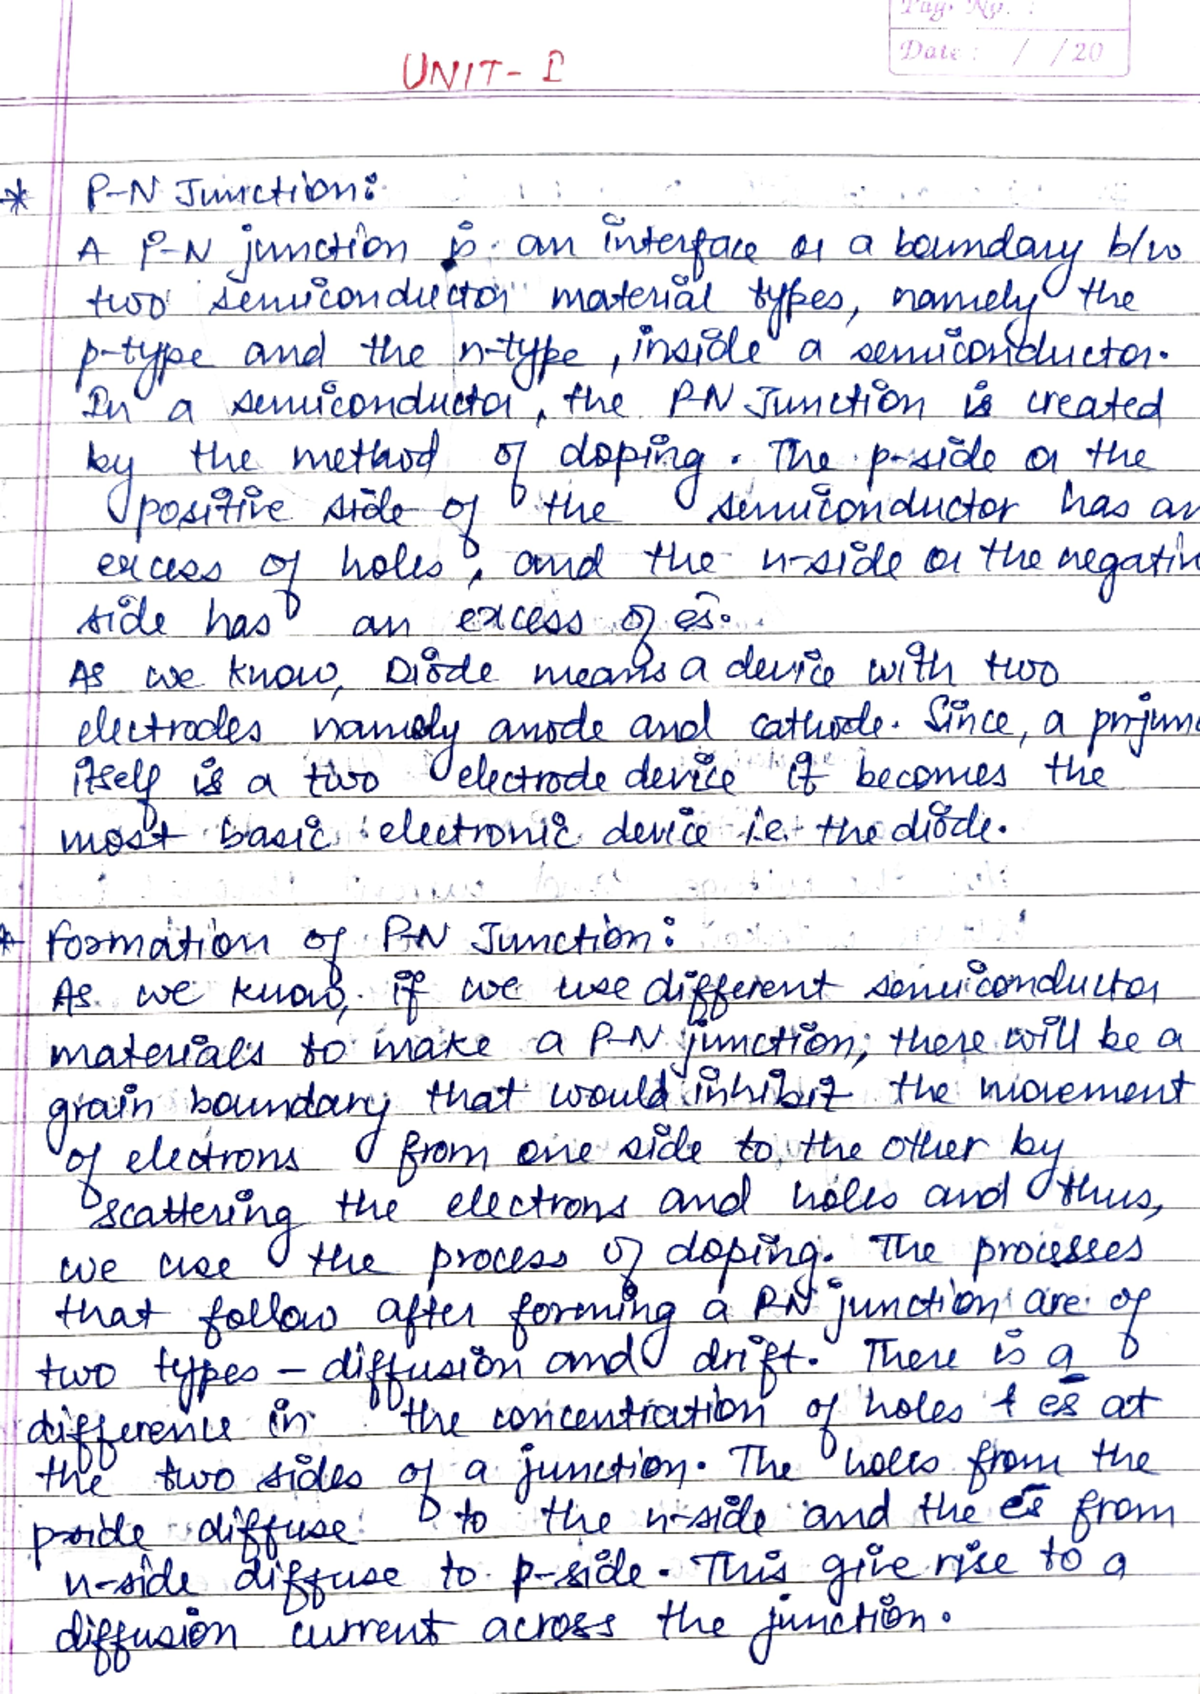 Pag. No. :
Date : / /20
UNIT - I
* P-N Junction:
A P-N junction is an interface or a boundary b/w
two semiconductor material types, namely the
p-type and the n-type, inside a semiconductor.
In a semiconductor, the PN Junction is created
by the method of doping. The p-side or the
positive side of the semiconductor has an
excess of holes, and the n-side or the negativ
side has an excess of es.
As we know, Diode means a device with two
electrodes namely anode and cathode. Since, a pnjunc
itself is a two electrode device it becomes the
most basic electronic device i.e. the diode.
* Formation of P-N Junction:
As we know, if we use different semiconductor
materials to make a P-N junction, there will be a
grain boundary that would inhibit the movement
of electrons from one side to the other by
scattering the electrons and holes and thus,
we use the process of doping. The processes
that follow after forming a P-N junction are of
two types - diffusion and drift. There is a
difference in the concentration of holes & es at
the two sides of a junction. The holes from the
p-side diffuse to the n-side and the es from
n-side diffuse to p-side. This give rise to a
diffusion current across the junction.